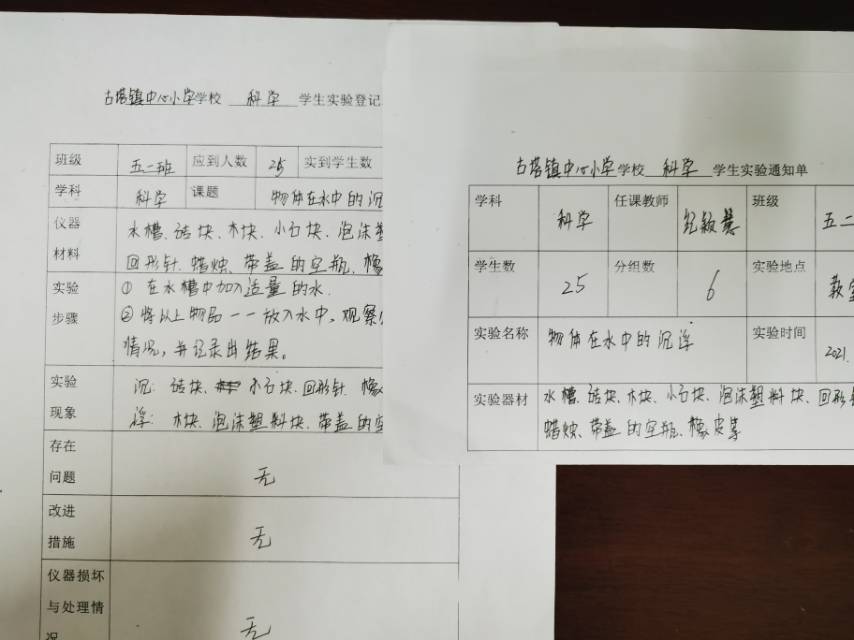 古塔镇中心小学学校 科学 学生实验登记
班级 五二班 应到人数 25 实到学生数
学科 科学 课题 物体在水中的沉
仪器材料 水槽、砖块、木块、小石块、泡沫塑
回形针、蜡烛、带盖的空瓶、橡
实验步骤 ① 在水槽中加入适量的水.
② 将以上物品一一放入水中,观察
情况,并记录出结果。
实验现象 沉:砖块、小石块、回形针、橡
浮:木块、泡沫塑料块、带盖的空
存在问题 无
改进措施 无
仪器损坏与处理情况 无
古塔镇中心小学学校 科学 学生实验通知单
学科 科学 任课教师 班级 五二
学生数 25 分组数 6 实验地点 教室
实验名称 物体在水中的沉浮 实验时间 2021.
实验器材 水槽、砖块、木块、小石块、泡沫塑料块、回形
蜡烛、带盖的空瓶、橡皮等